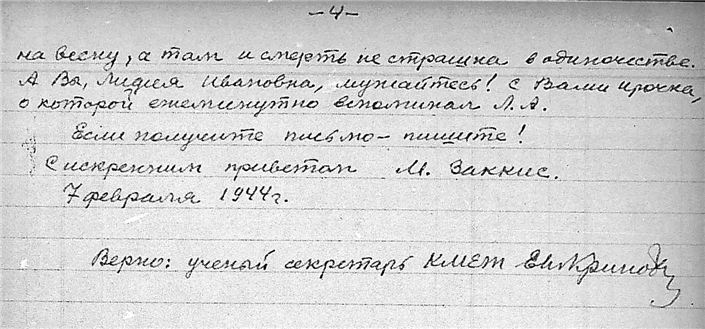 -4-
на весну, а там и смерть не страшна в одиночестве.
А Вы, Лидия Ивановна, мужайтесь! С Вами Ирочка,
о которой ежеминутно вспоминал Л.А.
Если получите письмо - пишите!
С искренним приветом М. Заккис.
7 февраля 1944 г.
Верно: ученый секретарь КМЕЖ